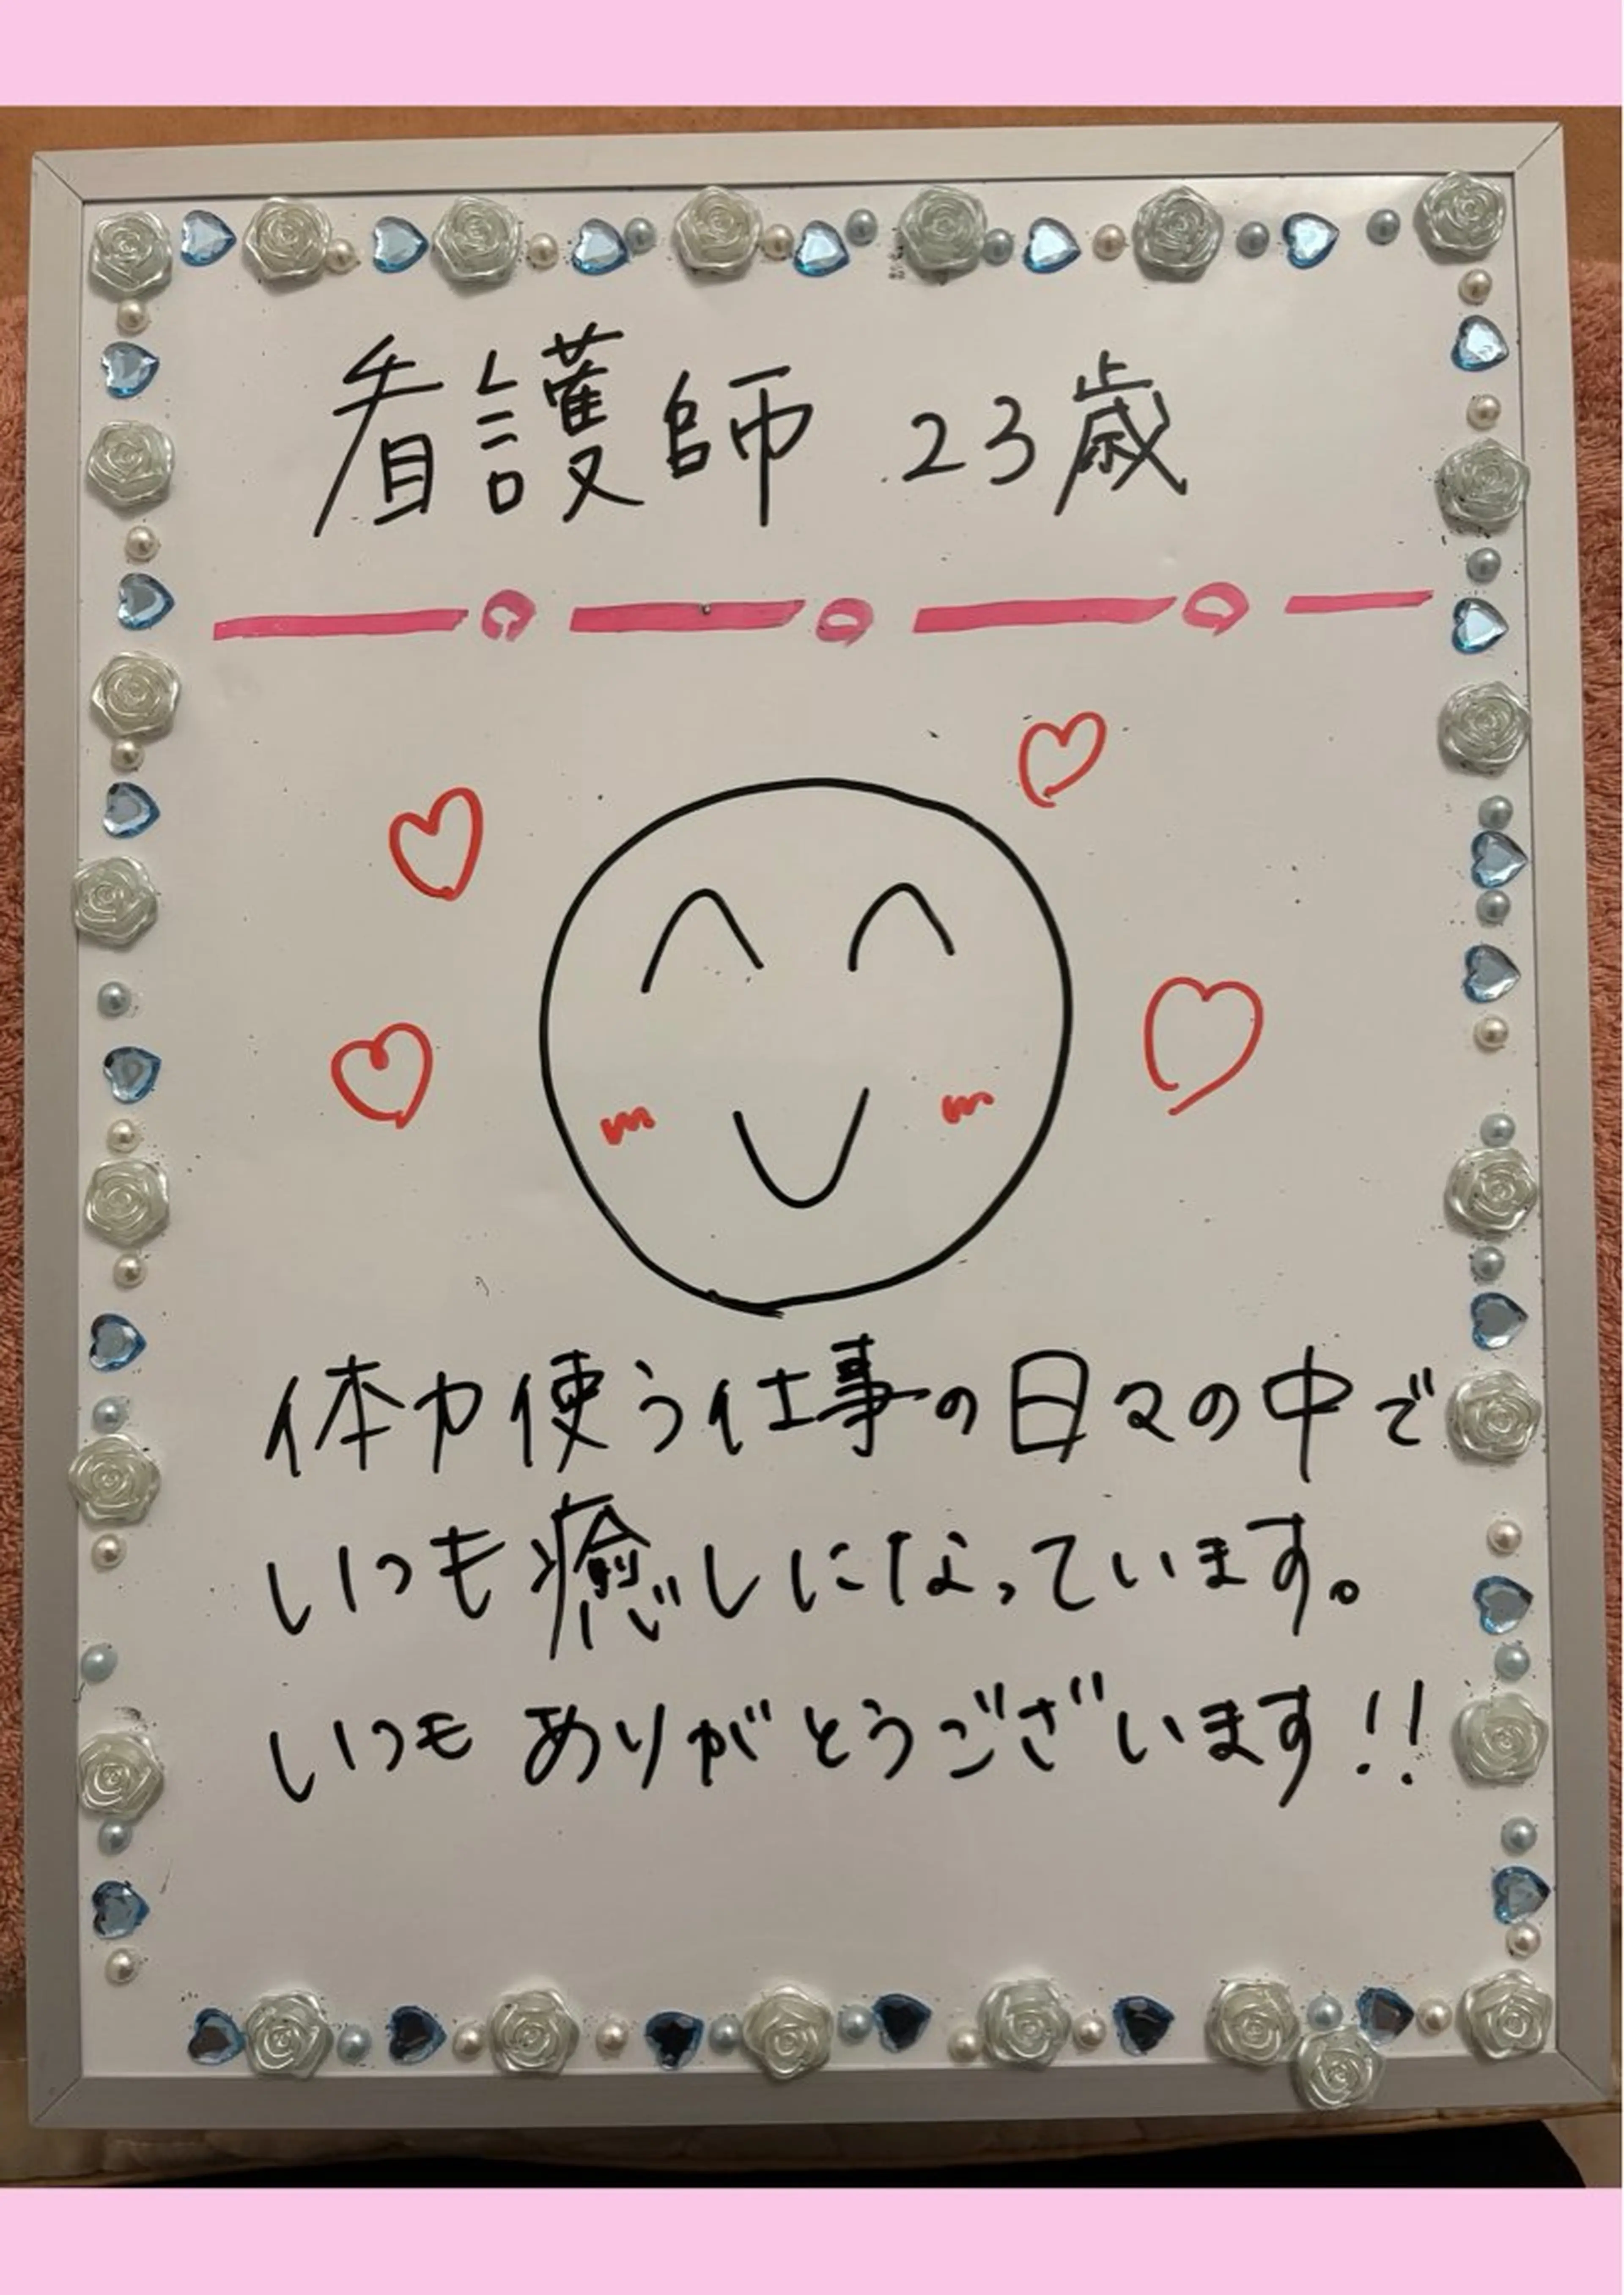 看護師 23歳
体力使う仕事の日々の中で
いつも癒しになっています。
いつもありがとうございます!!